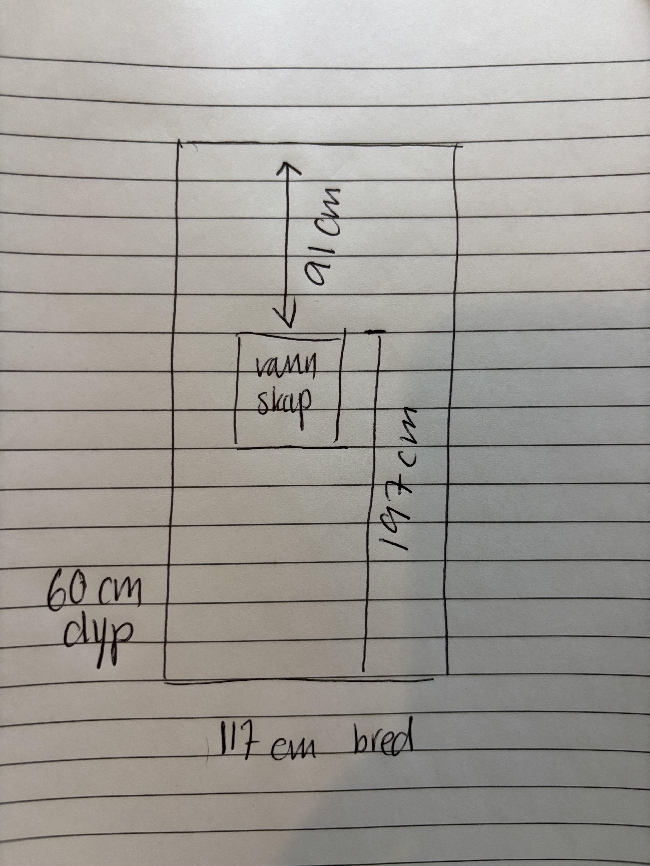 91 cm
vann
skap
197 cm
60 cm
dyp
117 cm bred